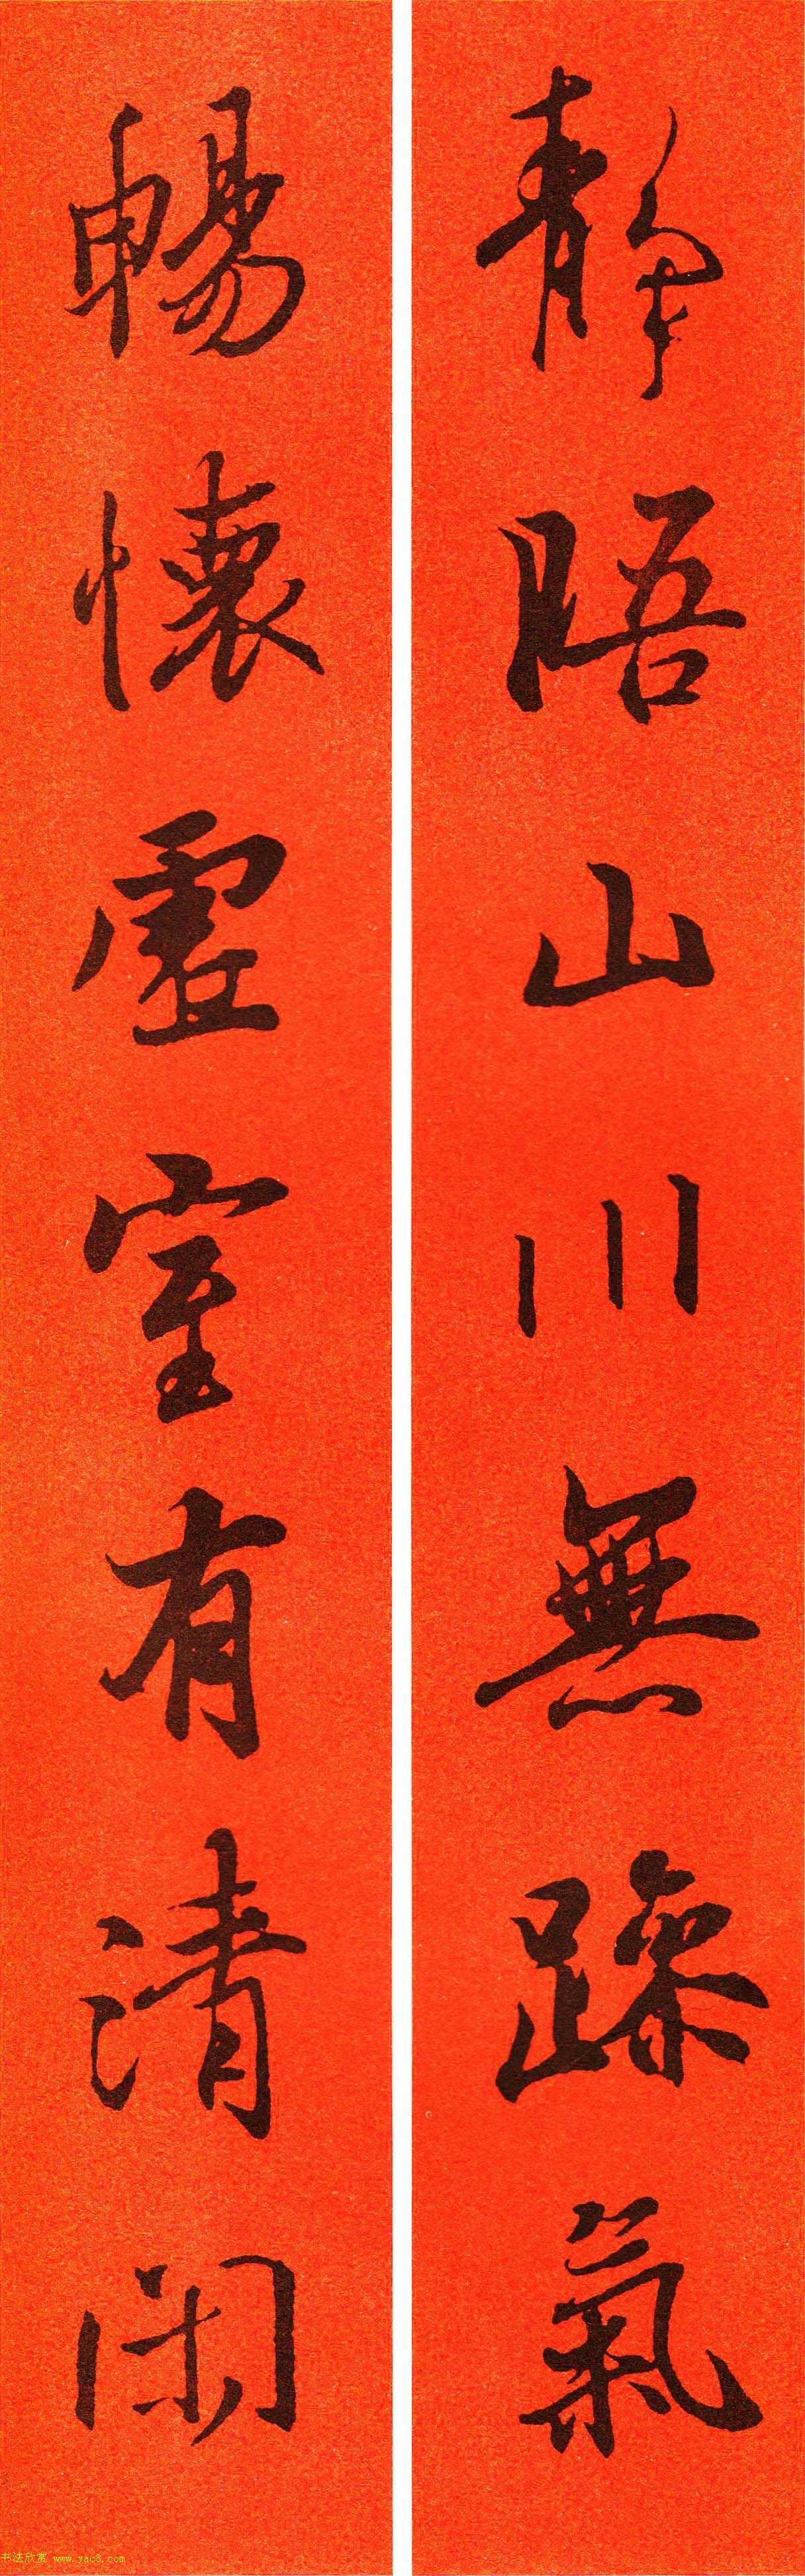 靜晤山川無躁氣
暢懷虛室有清閑
书法欣赏 www.yac8.com